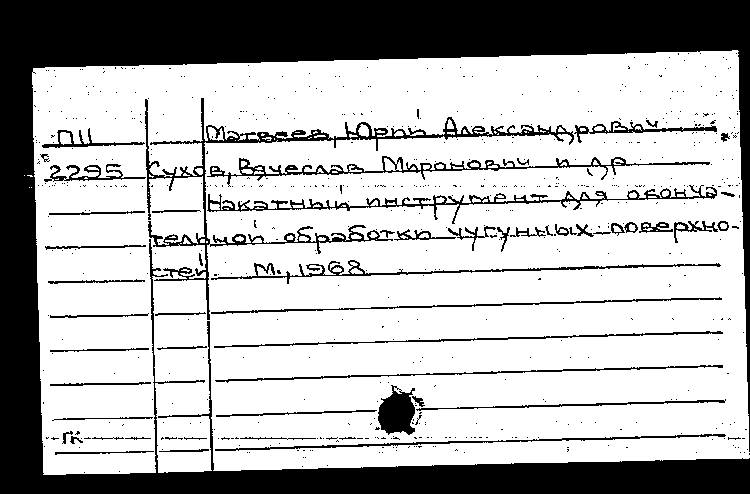 П11 Матвеев, Юрий Александрович
2295 Сухов, Вячеслав Миронович и др
Накатный инструмент для оконча-
тельной обработки чугунных поверхно-
стей. М., 1968
ГК